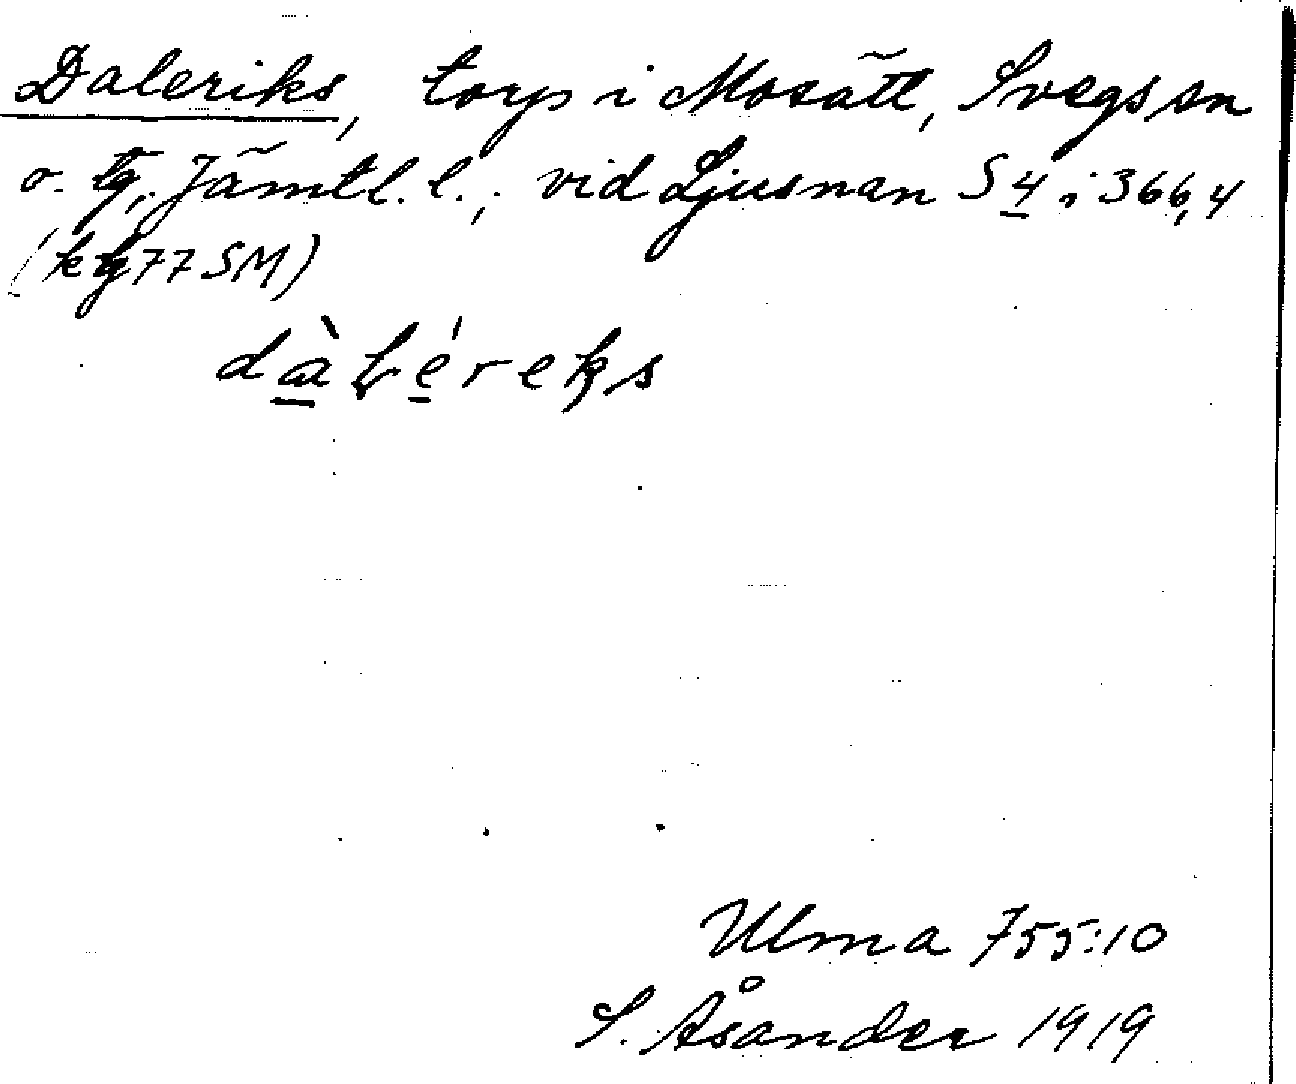 Daleriks, torp i Mosätt, Svegs sn
o. tg, Jämtl. l., vid Ljusnan S 4 i 366,4
(k tg 77 SM)
Ulma 755:10
S. Åsander 1919